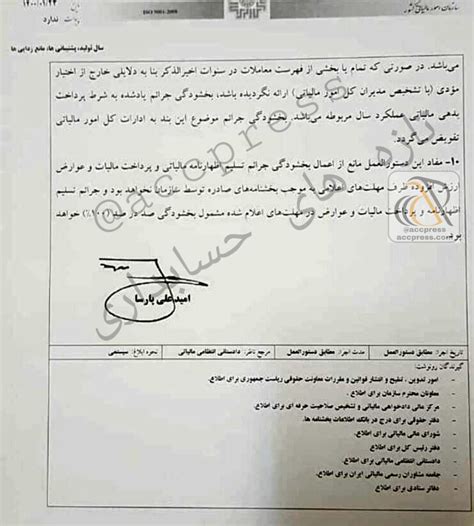 سازمان امور مالیاتی کشور
ISO 9001:2008
۱۴۰۰/۰۱/۲۳
ندارد
سال تولید، پشتیبانی ها، مانع زدایی ها
می‌باشد. در صورتی که تمام یا بخشی از فهرست معاملات در سنوات اخیرالذکر بنا به دلایلی خارج از اختیار
مؤدی (با تشخیص مدیران کل امور مالیاتی) ارائه نگردیده باشد، بخشودگی جرائم یادشده به شرط پرداخت
بدهی مالیاتی عملکرد سال مربوطه می‌باشد. بخشودگی جرائم موضوع این بند به ادارات کل امور مالیاتی
تفویض می‌گردد.
۱۰- مفاد این دستورالعمل مانع از اعمال بخشودگی جرائم تسلیم اظهارنامه مالیاتی و پرداخت مالیات و عوارض
ارزش افزوده ظرف مهلت‌های اعلامی به موجب بخشنامه‌های صادره توسط سازمان نخواهد بود و جرائم تسلیم
اظهارنامه و پرداخت مالیات و عوارض در مهلت‌های اعلام شده مشمول بخشودگی صد در صد (۱۰۰٪) خواهد
بود.
امید علی پارسا
تاریخ اجرا: مطابق دستورالعمل مدت اجرا: مطابق دستورالعمل مرجع ناظر: دادستانی انتظامی مالیاتی نحوه ابلاغ: سیستمی
گیرندگان رونوشت:
- امور تدوین، تنقیح و انتشار قوانین و مقررات معاونت حقوقی ریاست جمهوری برای اطلاع.
- معاونان محترم سازمان برای اطلاع.
- مرکز عالی دادخواهی مالیاتی و تشخیص صلاحیت حرفه ای برای اطلاع.
- دفتر حقوقی برای درج در بانک اطلاعات بخشنامه ها.
- شورای عالی مالیاتی برای اطلاع.
- دفتر رئیس کل برای اطلاع.
- دادستانی انتظامی مالیاتی برای اطلاع.
- جامعه مشاوران رسمی مالیاتی ایران برای اطلاع.
- دفاتر ستادی برای اطلاع.
@accpress
تازه های حسابداری
@accpress
accpress.com